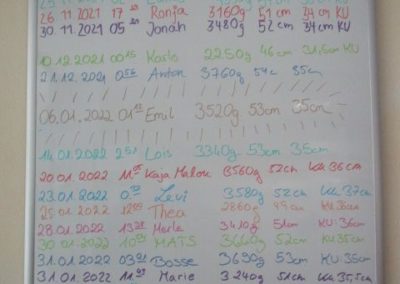 26.11.2021 17 Ronja 3160g 51cm 34 cm KU
30.11.2021 05 Jonah 3480g 52cm 34cm KU
10.12.2021 00 15 Karlo 2250g 46cm 31,5cm KU
21.12.2021 0 56 Anton 3760g 54c 35cm
06.01.2022 01 Emil 3520g 53cm 35cm
14.01.2022 2 Lois 3340g 53cm 35cm
20.01.2022 11 Kaja Malou 3560g 52cm KU 36cm
23.01.2022 0 Levi 3580g 52cm KU 37cm
25.01.2022 12 Thea 2860g 49cm KU 36cm
28.01.2022 13 Merle 3410g 51cm KU: 36cm
30.01.2022 10 MATS 3660g 52cm KU 35cm
31.01.2022 03 Bosse 3690g 53cm KU: 36cm
31.01.2022 11 Marie 3240g 51cm KU 35,5cm